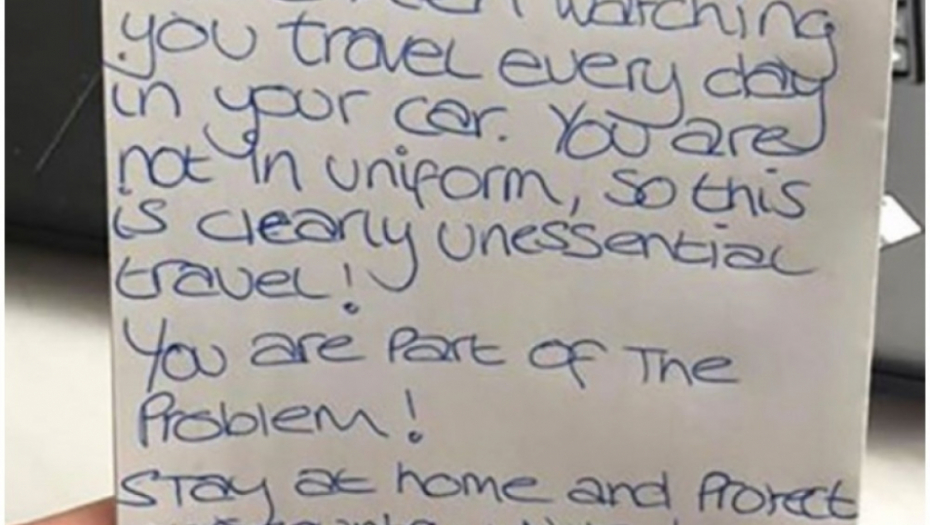 watching
you travel every day
in your car. You are
not in uniform, so this
is clearly unessential
travel!
You are Part of The
Problem!
STay at home and Protect